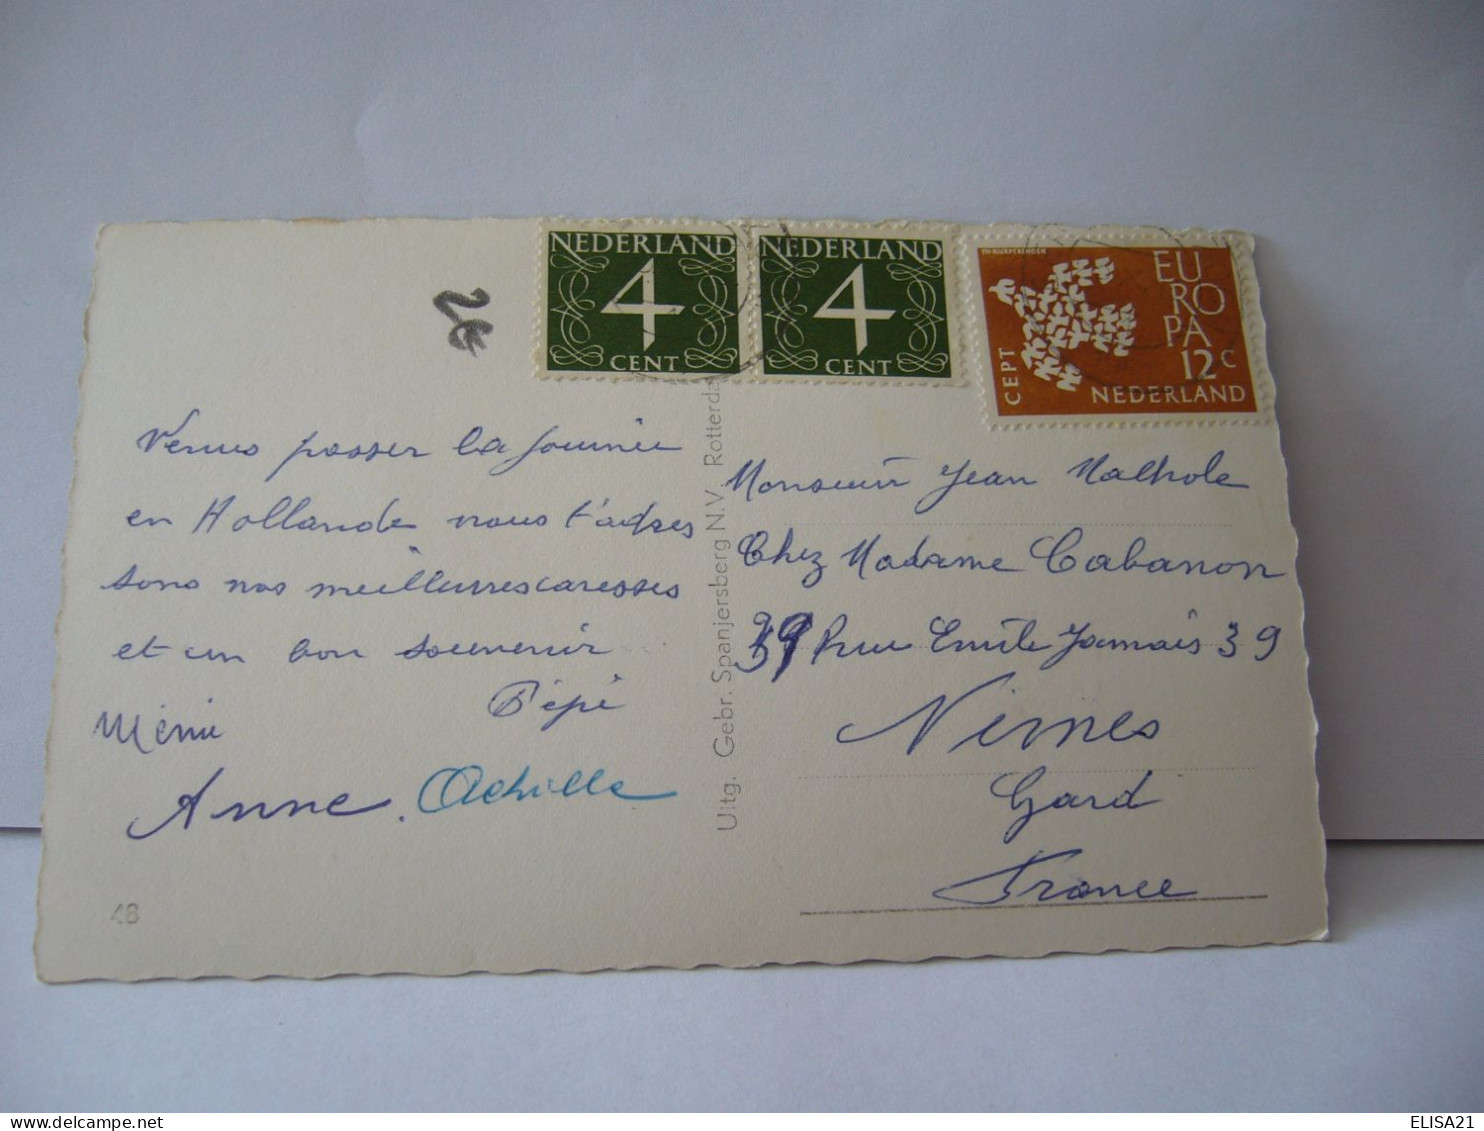 NEDERLAND
4
CENT
NEDERLAND
4
CENT
EU
RO
PA
12 C
CEPT
NEDERLAND
2€
Venus passer la Journée
en Hollande nous t'adres
sons nos meilleurescaresses
et un bon souvenir
Mémé Pépé
Anne. Achille
48
Uitg. Gebr. Spanjersberg N.V. Rotterda
Monsieur Jean Malhole
Chez Madame Cabanon
39 Rue Emile Jamais 39
Nimes
Gard
France
ELISA21